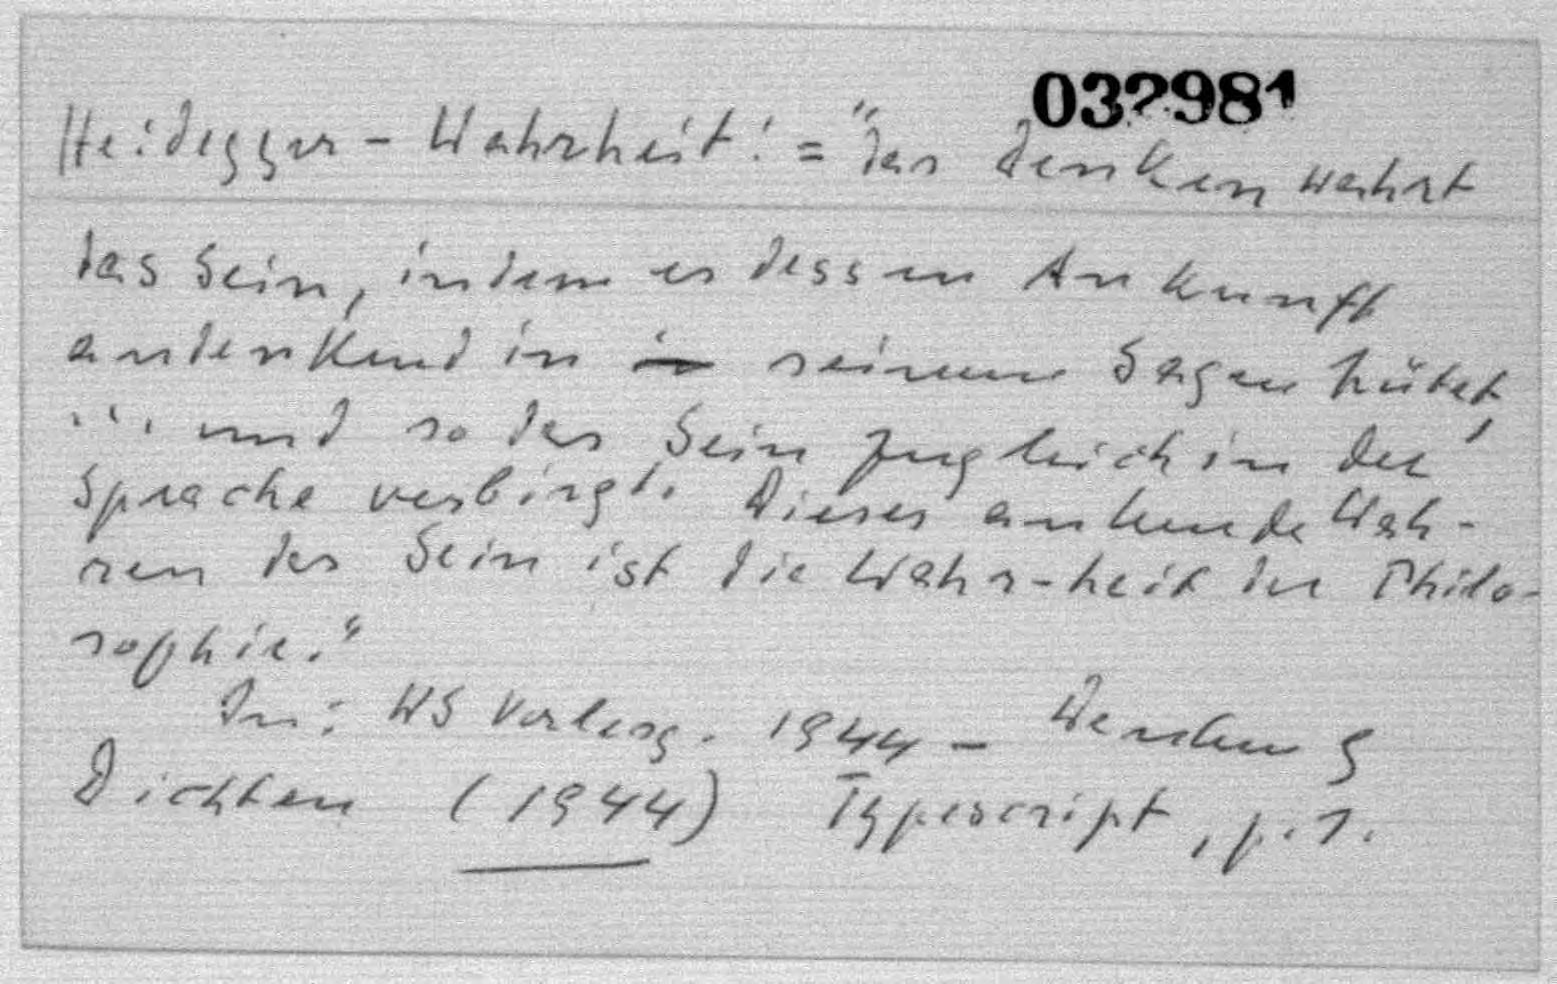 032981
Heidegger – Wahrheit: = "das Denken wahrt
das Sein, indem es dessen Ankunft
andenkend in seinem Sagen hütet,
... und so das Sein zugleich in der
Sprache verbirgt. Dieses Wah-
ren des Sein ist die Wahr-heit der Philo-
sophie."
In: WS Vorlesg. 1944 –
Dichten (1944) Typescript, p. 1.